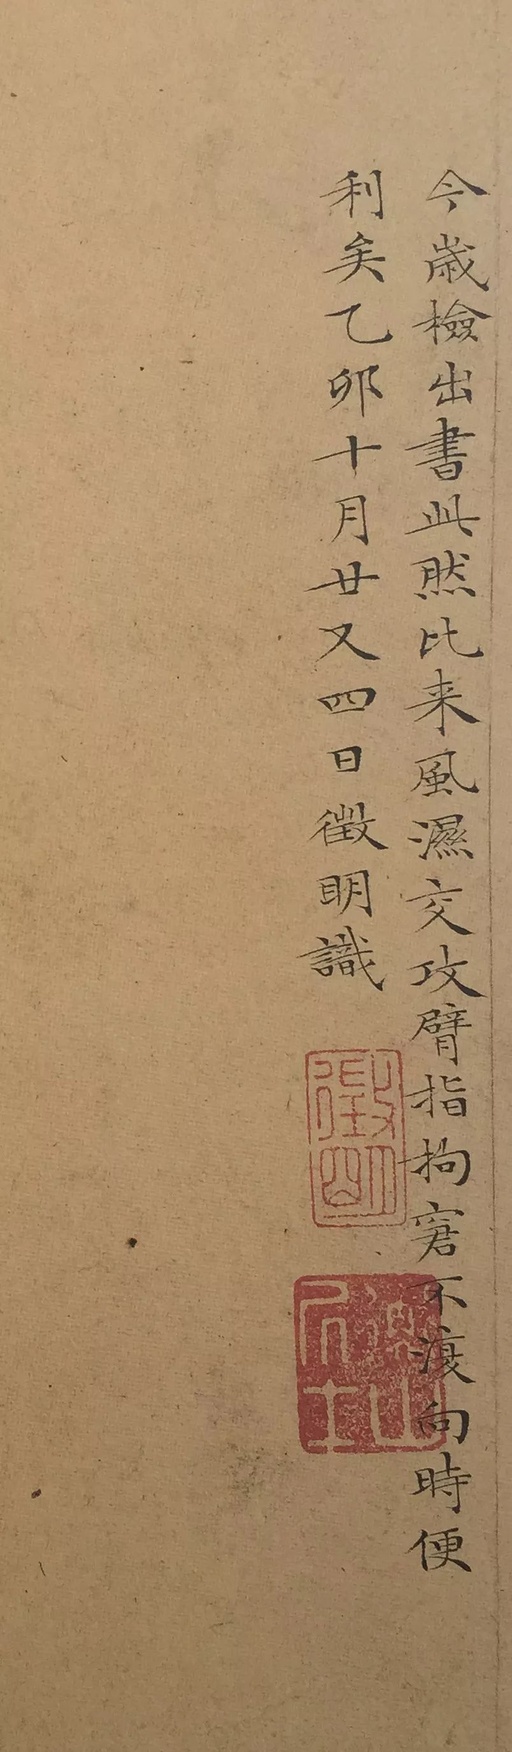 今歲檢出書此然比来風濕交攻臂指拘窘不復向時便
利矣乙卯十月廿又四日徵明識
徵明
衡山居士